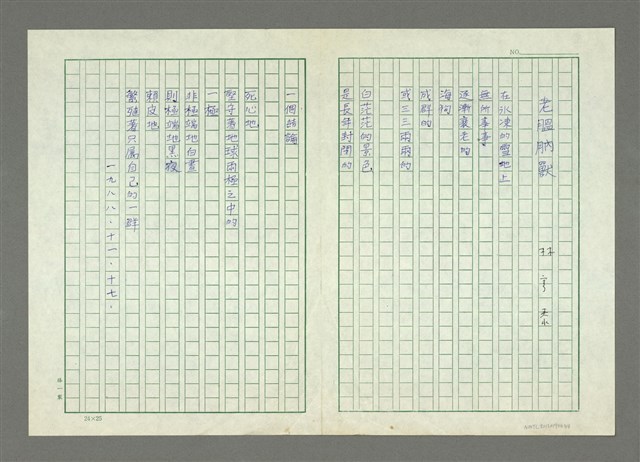 NO.
老膃肭獸
林亨泰
在氷凍的雪地上
無所事事
逐漸衰老的
海狗
成群的
或三三兩兩的
白茫茫的景色
是長年封閉的
一個結論
死心地
堅守著地球兩極之中的
一極
非極端地白晝
則極端地黑夜
賴皮地
繁殖著只屬自己的一群
一九八八・十一・十七・
24×25